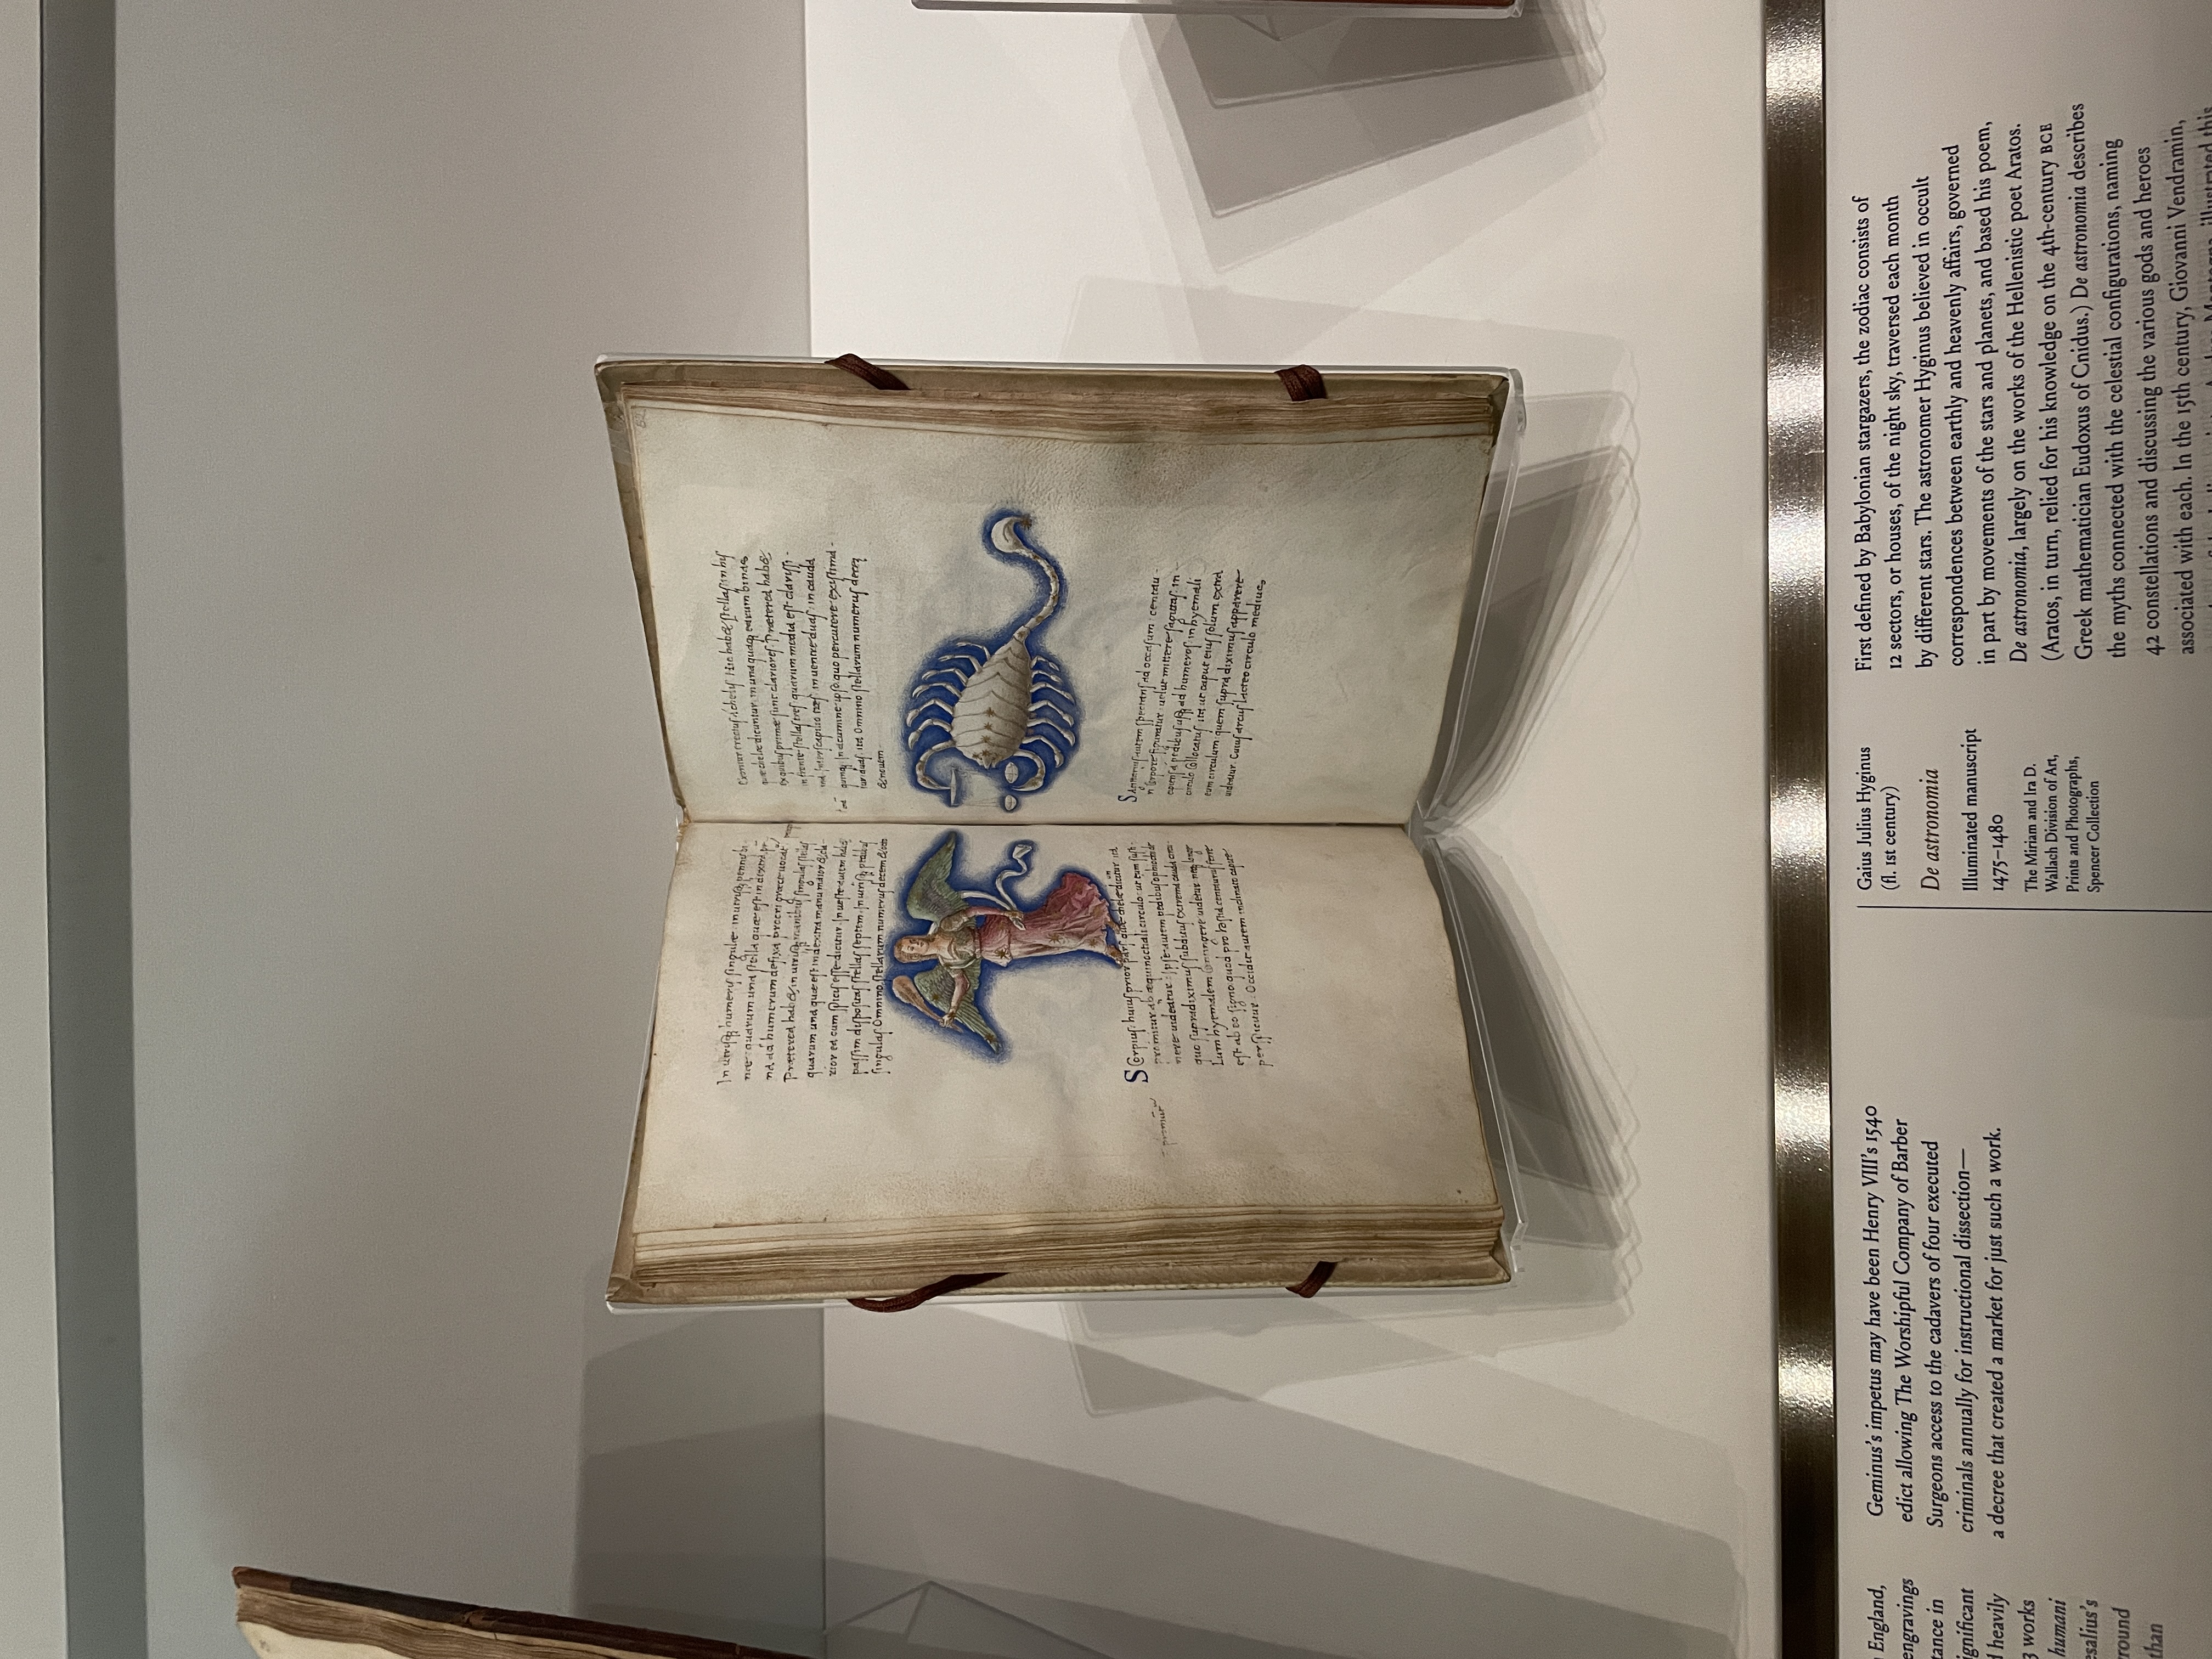 In utrisq; humeris singulæ: in utrisq; pennis bi-
næ: quarum una stella quæ est in dextra pen
na ad humerum defixa græce uocat
Præterea hab& in utrisq; manibus singulas stellas
quarum una quæ est in dextra manu maior & cla-
rior ea cum spicis esse dicitur. In ueste autem hab&
passim dispositas stellas septem. In utrisq; pedibus
singulas. Omnino stellarum numerus decem & octo
SCorpius: huius prior pars quæ chelæ dicitur ita
premitur ab æquinoctiali circulo: ut eum susti-
nere uideatur: Ipse autem pedibus ophiuchi
quo supra diximus subditus extrema cauda circu-
lum hyemalem contingere uidetur neq; longe
est ab eo signo: quod pro hostia centaurus ferre
perspicitur. Occidit autem inclinato capite
Exoritur erectus chelis. Hic hab& stellas in his
quæ chelæ dicuntur: in unaquaq; earum binas
ex quibus primæ sunt clariores. Præterea hab&
in fronte stellas tres quarum media est clarissi-
ma. Interscapilio tres: in uentre duas: in cauda
quinq;. In acumine ipso quo percutere existima-
tur duas: ita Omnino stellarum numerus decem
& nouem
SAgittarius autem spectans ad occasum: centau-
ri corpore figuratur: uelut mittere sagittas in-
cipiens a pedibus usq; ad humeros in hyemali
circulo collocatus: ita ut caput eius solum extra
eum circulum: quem supra diximus apparere
uideatur. Cuius arcus lacteo circulo medius
England,
engravings
tance in
ignificant
d heavily
3 works
humani
esalius's
round
than
Geminus's impetus may have been Henry VIII's 1540
edict allowing The Worshipful Company of Barber
Surgeons access to the cadavers of four executed
criminals annually for instructional dissection—
a decree that created a market for just such a work.
Gaius Julius Hyginus
(fl. 1st century)
De astronomia
Illuminated manuscript
1475–1480
The Miriam and Ira D.
Wallach Division of Art,
Prints and Photographs,
Spencer Collection
First defined by Babylonian stargazers, the zodiac consists of
12 sectors, or houses, of the night sky, traversed each month
by different stars. The astronomer Hyginus believed in occult
correspondences between earthly and heavenly affairs, governed
in part by movements of the stars and planets, and based his poem,
De astronomia, largely on the works of the Hellenistic poet Aratos.
(Aratos, in turn, relied for his knowledge on the 4th-century BCE
Greek mathematician Eudoxus of Cnidus.) De astronomia describes
the myths connected with the celestial configurations, naming
42 constellations and discussing the various gods and heroes
associated with each. In the 15th century, Giovanni Vendramin,
illustrated this